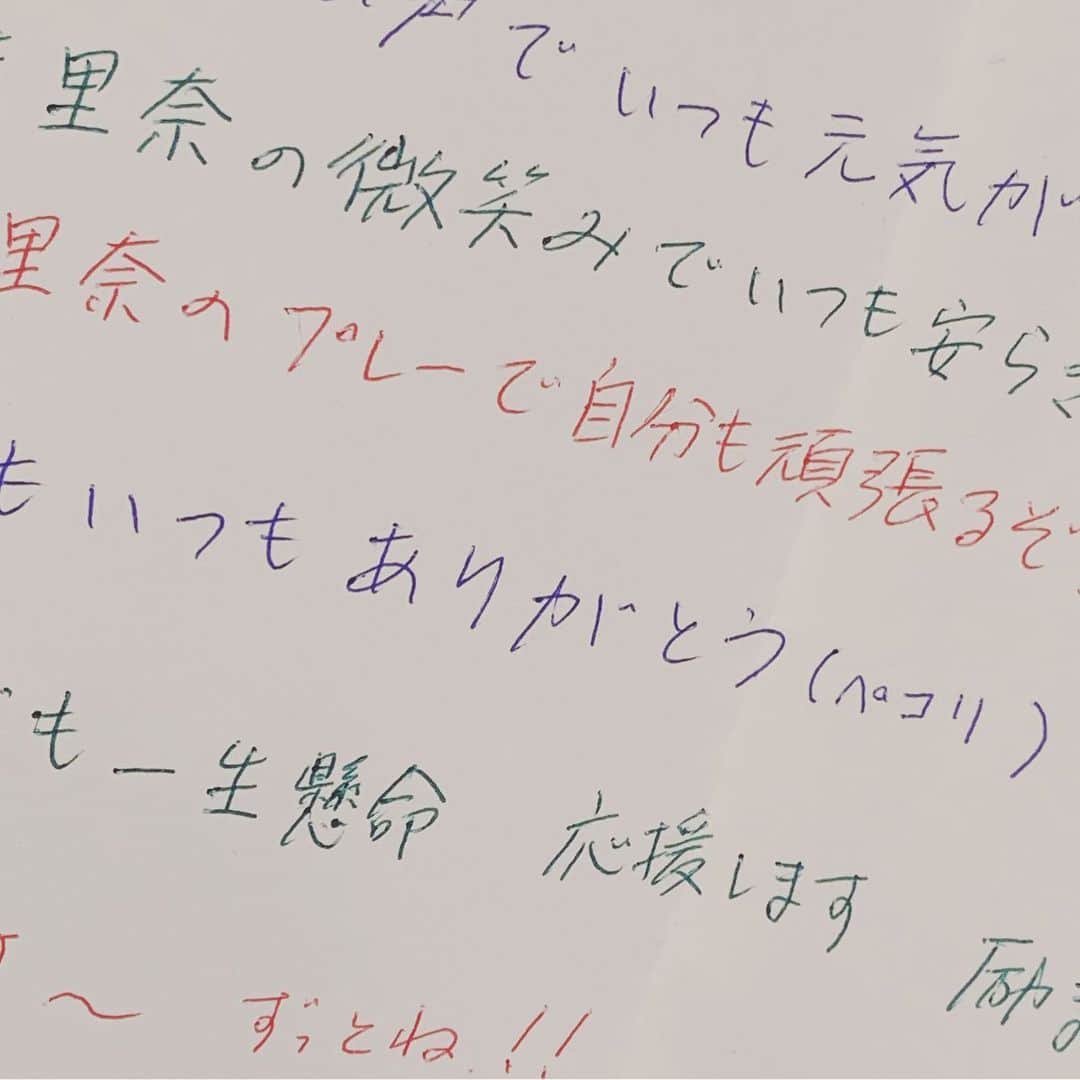 でいつも元気が
里奈の微笑みでいつも安らぎ
里奈のプレーで自分も頑張るぞ
もいつもありがとう(ペコリ)
も一生懸命 応援します
励ま
〜 ずっとね!!